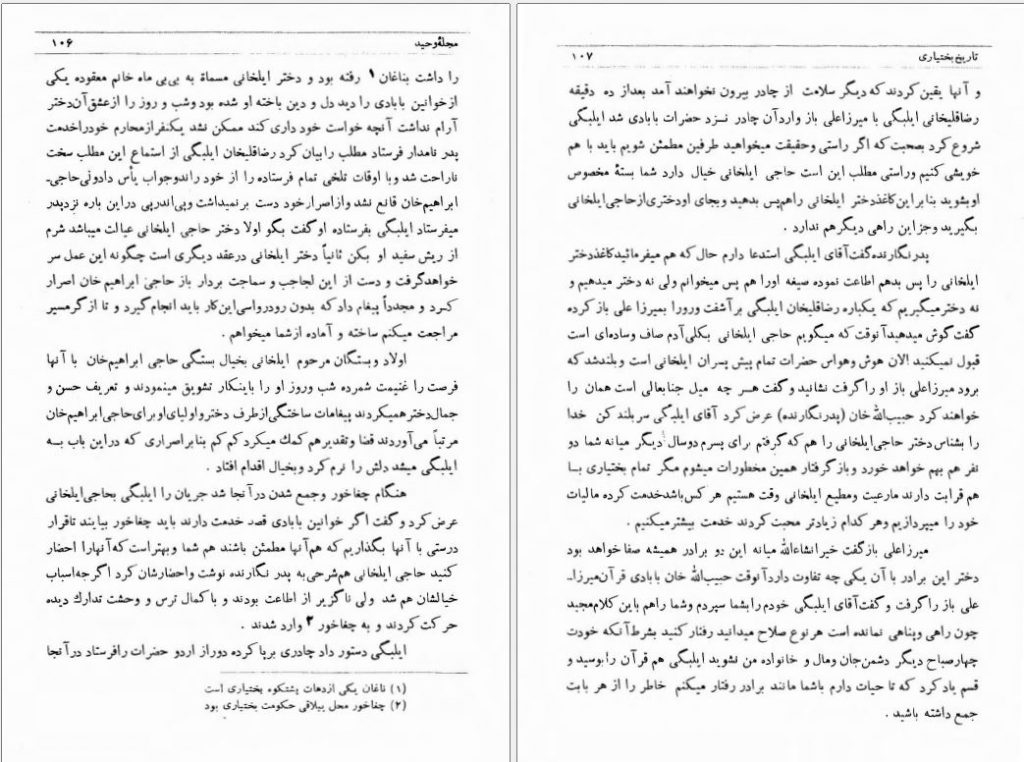 مجلهٔ وحید
۱۰۶
را داشت بناغان ۱ رفته بود و دختر ایلخانی مسماة به بی‌بی ماه خانم معقوده یکی
از خوانین بابادی را دید دل و دین باخته او شده بود وشب و روز را از عشق آن دختر
آرام نداشت آنچه خواست خود داری کند ممکن نشد یکنفر از محارم خود را خدمت
پدر نامدار فرستاد مطلب را بیان کرد رضاقلیخان ایلبگی از استماع این مطلب سخت
ناراحت شد و با اوقات تلخی تمام فرستاده را از خود راند و جواب یأس داد ولی حاجی-
ابراهیم‌خان قانع نشد و از اصرار خود دست بر نمیداشت و پی‌اندر‌پی در این باره نزد پدر
میفرستاد ایلبگی بفرستاده او گفت بگو اولا دختر حاجی ایلخانی عیالت میباشد شرم
از ریش سفید او بکن ثانیاً دختر ایلخانی در عقد دیگری است چگونه این عمل سر
خواهد گرفت و دست از این لجاجب و سماجت بردار باز حاجی ابراهیم خان اصرار
کرد و مجدداً پیغام داد که بدون رودرواسی این کار باید انجام گیرد و تا از گرمسیر
مراجعت میکنم ساخته و آماده از شما میخواهم .
اولاد و بستگان مرحوم ایلخانی بخیال بستگی حاجی ابراهیم‌خان با آنها
فرصت را غنیمت شمرده شب و روز او را باینکار تشویق مینمودند و تعریف حسن و
جمال دختر همیکردند پیغامات ساختگی از طرف دختر و اولیای او برای حاجی ابراهیم خان
مرتباً می‌آوردند قضا و تقدیر هم کمك میکرد کم کم بنابر اصراری که در این باب بـه
ایلبگی میشد دلش را نرم کرد و بخیال اقدام افتاد .
هنگام چغاخور وجمع شدن در آنجا شد جریان را ایلبگی بحاجی ایلخانی
عرض کرد و گفت اگر خوانین بابادی قصد خدمت دارند باید چغاخور بیایند تا قرار
درستی با آنها بگذاریم که هم آنها مطمئن باشند هم شما و بهتر است که آنها را احضار
کنید حاجی ایلخانی هم شرحی به پدر نگارنده نوشت و احضارشان کرد اگر چه اسباب
خیالشان هم شد ولی ناگزیر از اطاعت بودند و با کمال ترس و وحشت تدارك دیده
حرکت کردند و به چغاخور ۲ وارد شدند .
ایلبگی دستور داد چادری برپا کرده دور از اردو حضرات را فرستاد در آنجا
(۱) ناغان یکی از دهات پشتکوه بختیاری است
(۲) چغاخور محل ییلاقی حکومت بختیاری بود
تاریخ بختیاری
۱۰۷
و آنها یقین کردند که دیگر سلامت از چادر بیرون نخواهند آمد بعد از ده دقیقه
رضاقلیخانی ایلبگی با میرزاعلی باز وارد آن چادر نـزد حضرات بابادی شد ایلبگی
شروع کرد بصحبت که اگر راستی و حقیقت میخواهید طرفین مطمئن شویم باید با هم
خویشی کنیم و راستی مطلب این است حاجی ایلخانی خیال دارد شما بستهٔ مخصوص
او بشوید بنابر این کاغذ دختر ایلخانی را هم پس بدهید و بجای او دختری از حاجی ایلخانی
بگیرید و جز این راهی دیگر هم ندارد .
پدر نگارنده گفت آقای ایلبگی استدعا دارم حال که هم میفرمائید کاغذ دختر
ایلخانی را پس بدهم اطاعت نموده صیغه او را هم پس میخوانم ولی نه دختر میدهیم و
نه دختر میگیریم که یکباره رضاقلیخان ایلبگی بر آشفت و رو را بمیرزا علی باز کرده
گفت گوش میدهید آنوقت که میگویم حاجی ایلخانی بکلی آدم صاف و ساده‌ای است
قبول نمیکنید الان هوش و هواس حضرات تمام پیش پسران ایلخانی است و بلند شد که
برود میرزاعلی باز او را گرفت نشانید و گفت هـر چه میل جنابعالی است همان را
خواهند کرد حبیب‌الله خان (پدر نگارنده) عرض کرد آقای ایلبگی سر بلند کن خدا
را بشناس دختر حاجی ایلخانی را هم که گرفتم برای پسرم دو سال دیگر میانه شما دو
نفر هم بهم خواهد خورد و باز گرفتار همین مخطورات میشوم مگر تمام بختیاری بـا
هم قرابت دارند ما رعیت و مطیع ایلخانی وقت هستیم هر کس باشد خدمت کرده مالیات
خود را میپردازیم و هر کدام زیادتر محبت کردند خدمت بیشتر میکنیم .
میرزاعلی باز گفت خیر انشاءالله میانه این دو برادر همیشه صفا خواهد بود
دختر این برادر با آن یکی چه تفاوت دارد آنوقت حبیب‌الله خان بابادی قرآن میرزا-
علی باز را گرفت و گفت آقای ایلبگی خودم را بشما سپردم و شما را هم باین کلام مجید
چون راهی و پناهی نمانده است هر نوع صلاح میدانید رفتار کنید بشرط آنکه خودت
چهار صباح دیگر دشمن جان و مال و خانواده من نشوید ایلبگی هم قرآن را بوسید و
قسم یاد کرد که تا حیات دارم با شما مانند برادر رفتار میکنم خاطر را از هر بابت
جمع داشته باشید .